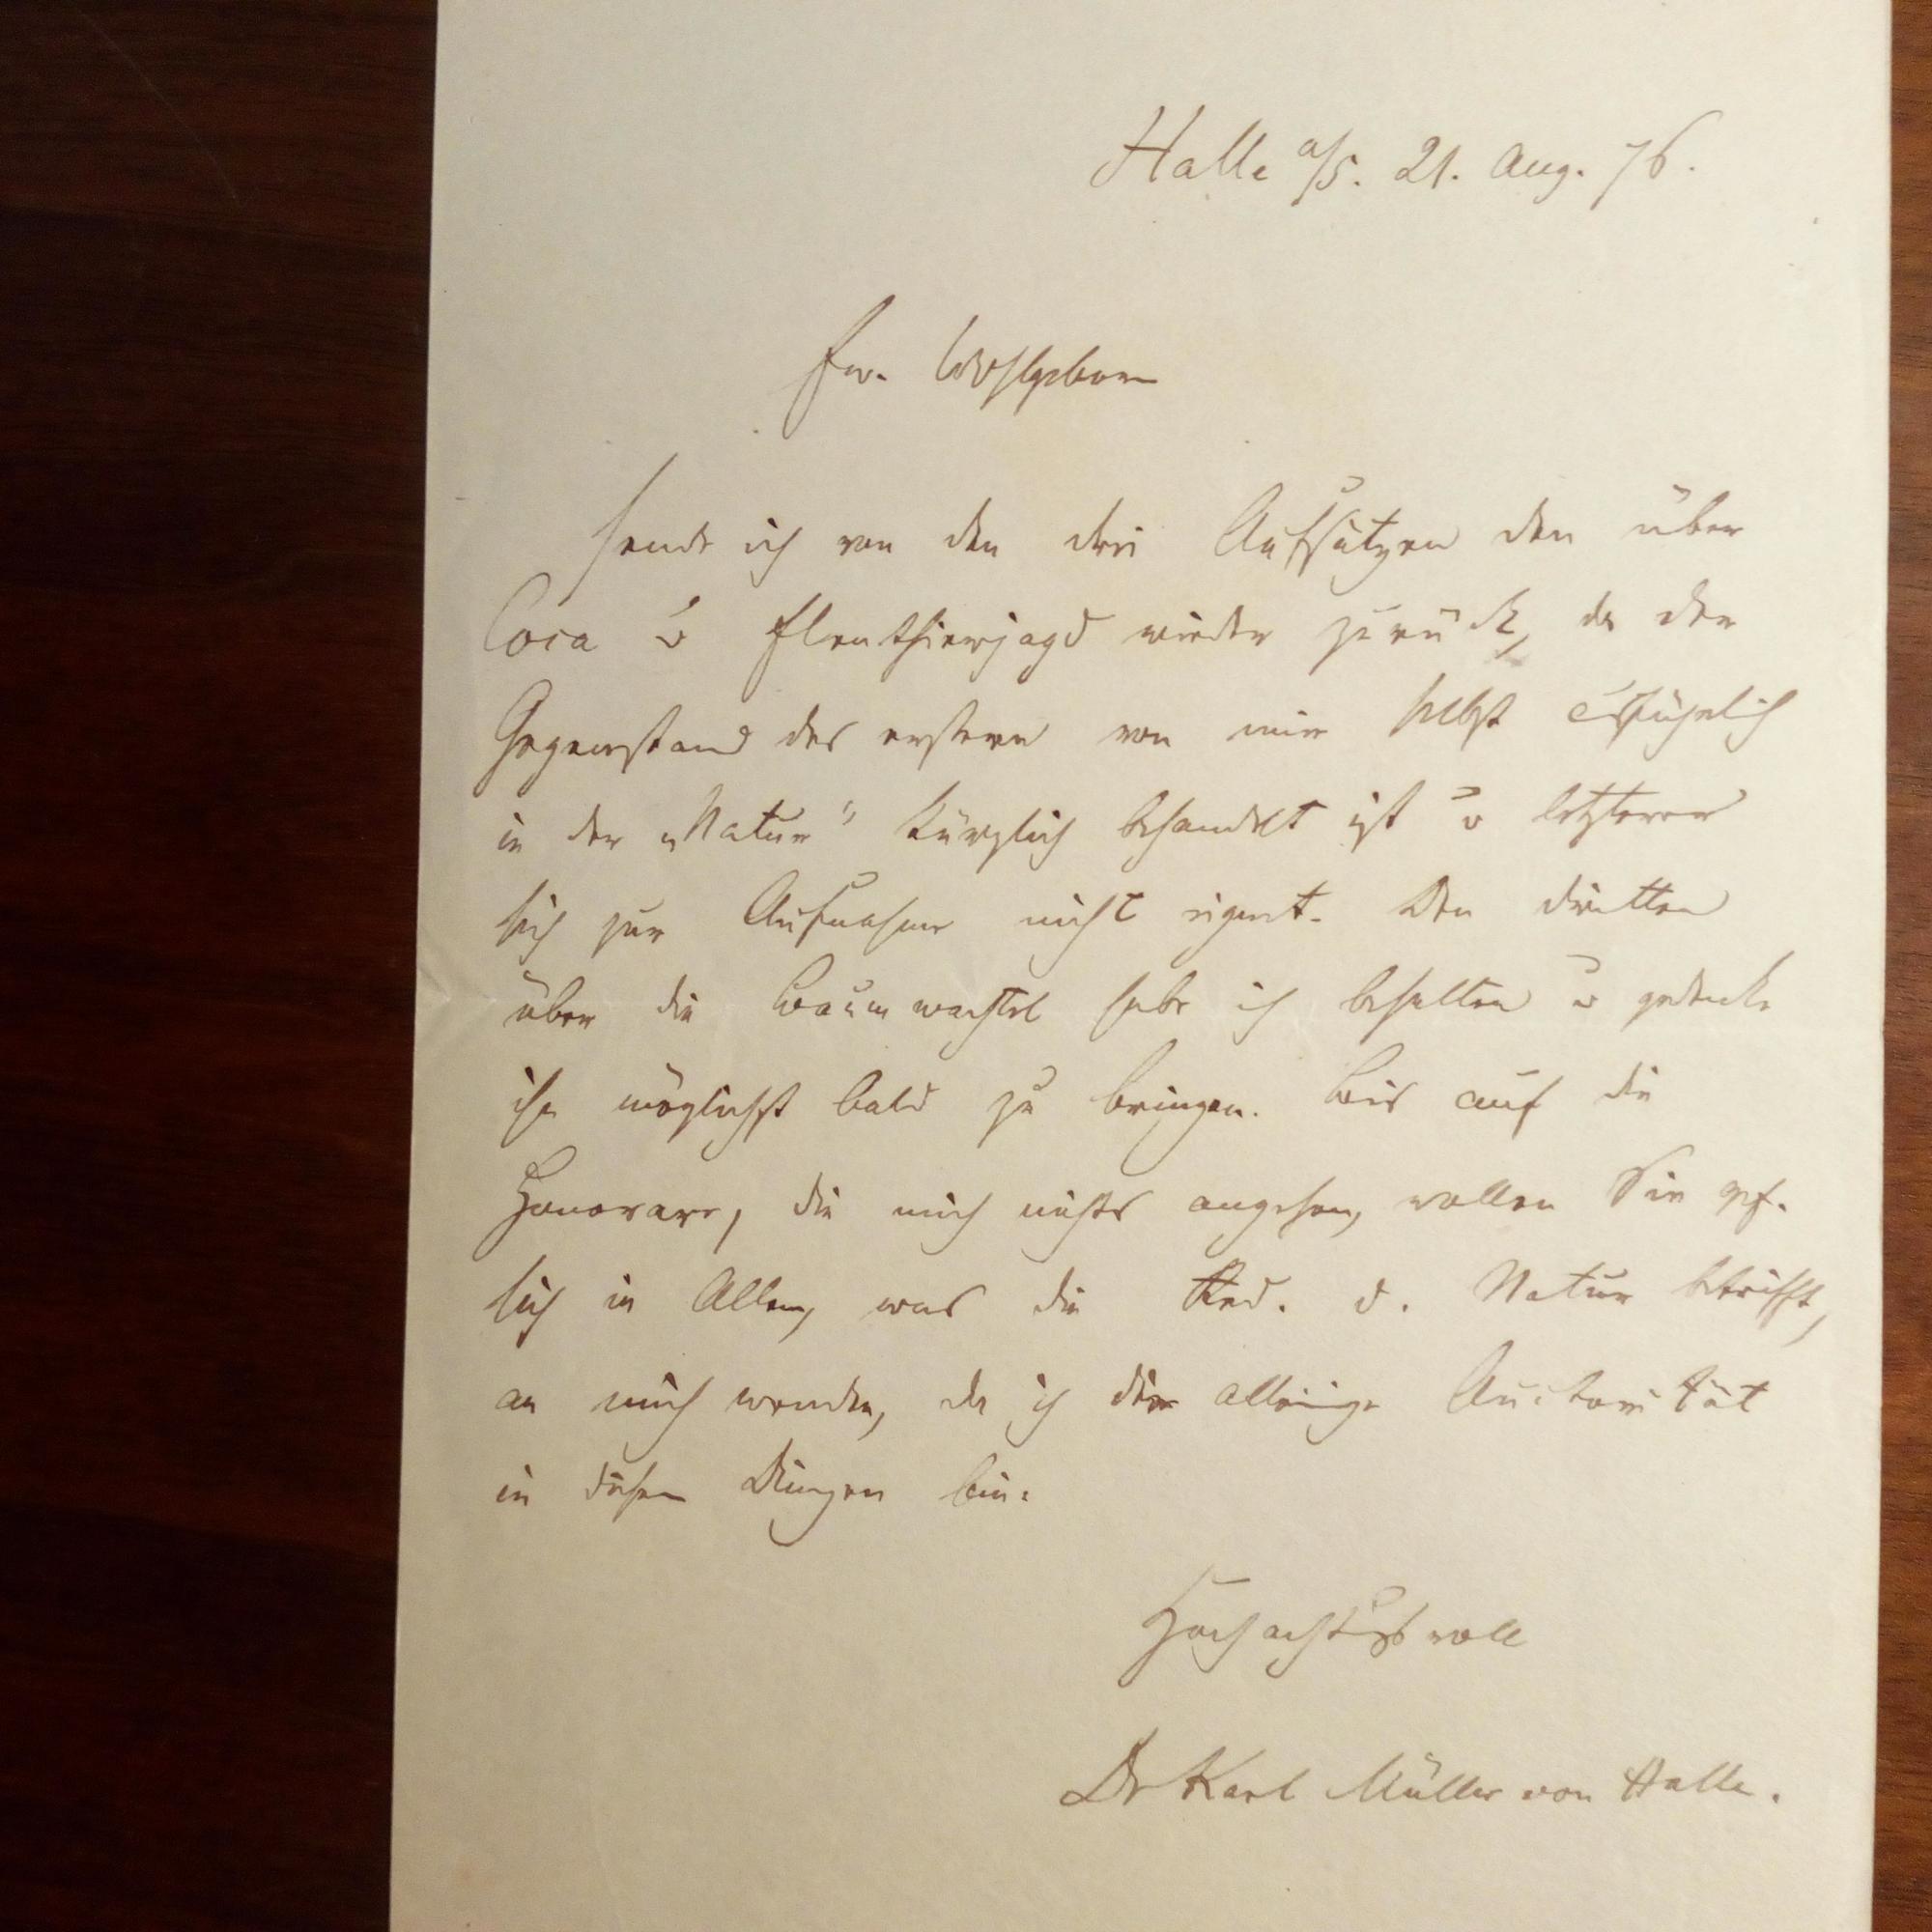 Halle a/S. 21. Aug. 76.
Ew. Wohlgeborn
sende ich von den drei Aufsätzen den über
Coca u Elenthierjagd wieder zurück, da der
Gegenstand des erstern von mir selbst ausführlich
in der „Natur“ kürzlich behandelt ist u letzterer
sich zur Aufnahme nicht eignet. Den dritten
über die Baumwachtel habe ich behalten u gedenke
ihn möglichst bald zu bringen. Bis auf die
Honorare, die mich nichts angehen, wollen Sie gef.
sich in Allem, was die Red. d. Natur betrifft,
an mich wenden, da ich die alleinige Auctorität
in diesen Dingen bin.
Hochachtungsvoll
Dr Karl Müller von Halle.